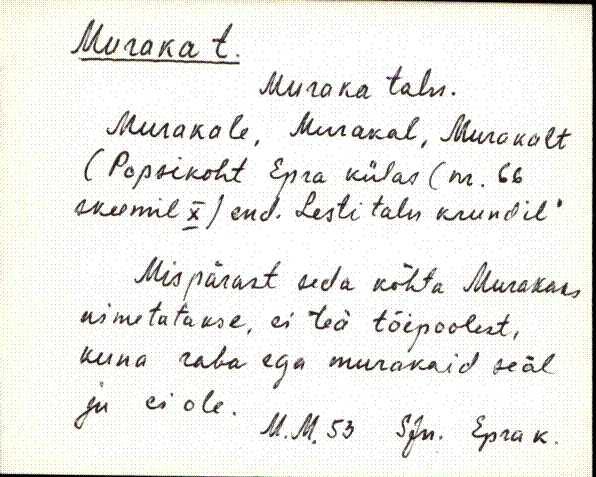 Muraka t.
Muraka talu.
Murakale, Murakal, Murakalt
(Popsikoht Epra külas (nr. 66
skeemil X) end. Lesti talu krundil"
Mispärast seda kohta Murakaks
nimetatakse, ei teä tõepoolest,
kuna raba ega murakaid seäl
ju ei ole.
M.M. 53 Sjn. Epra k.